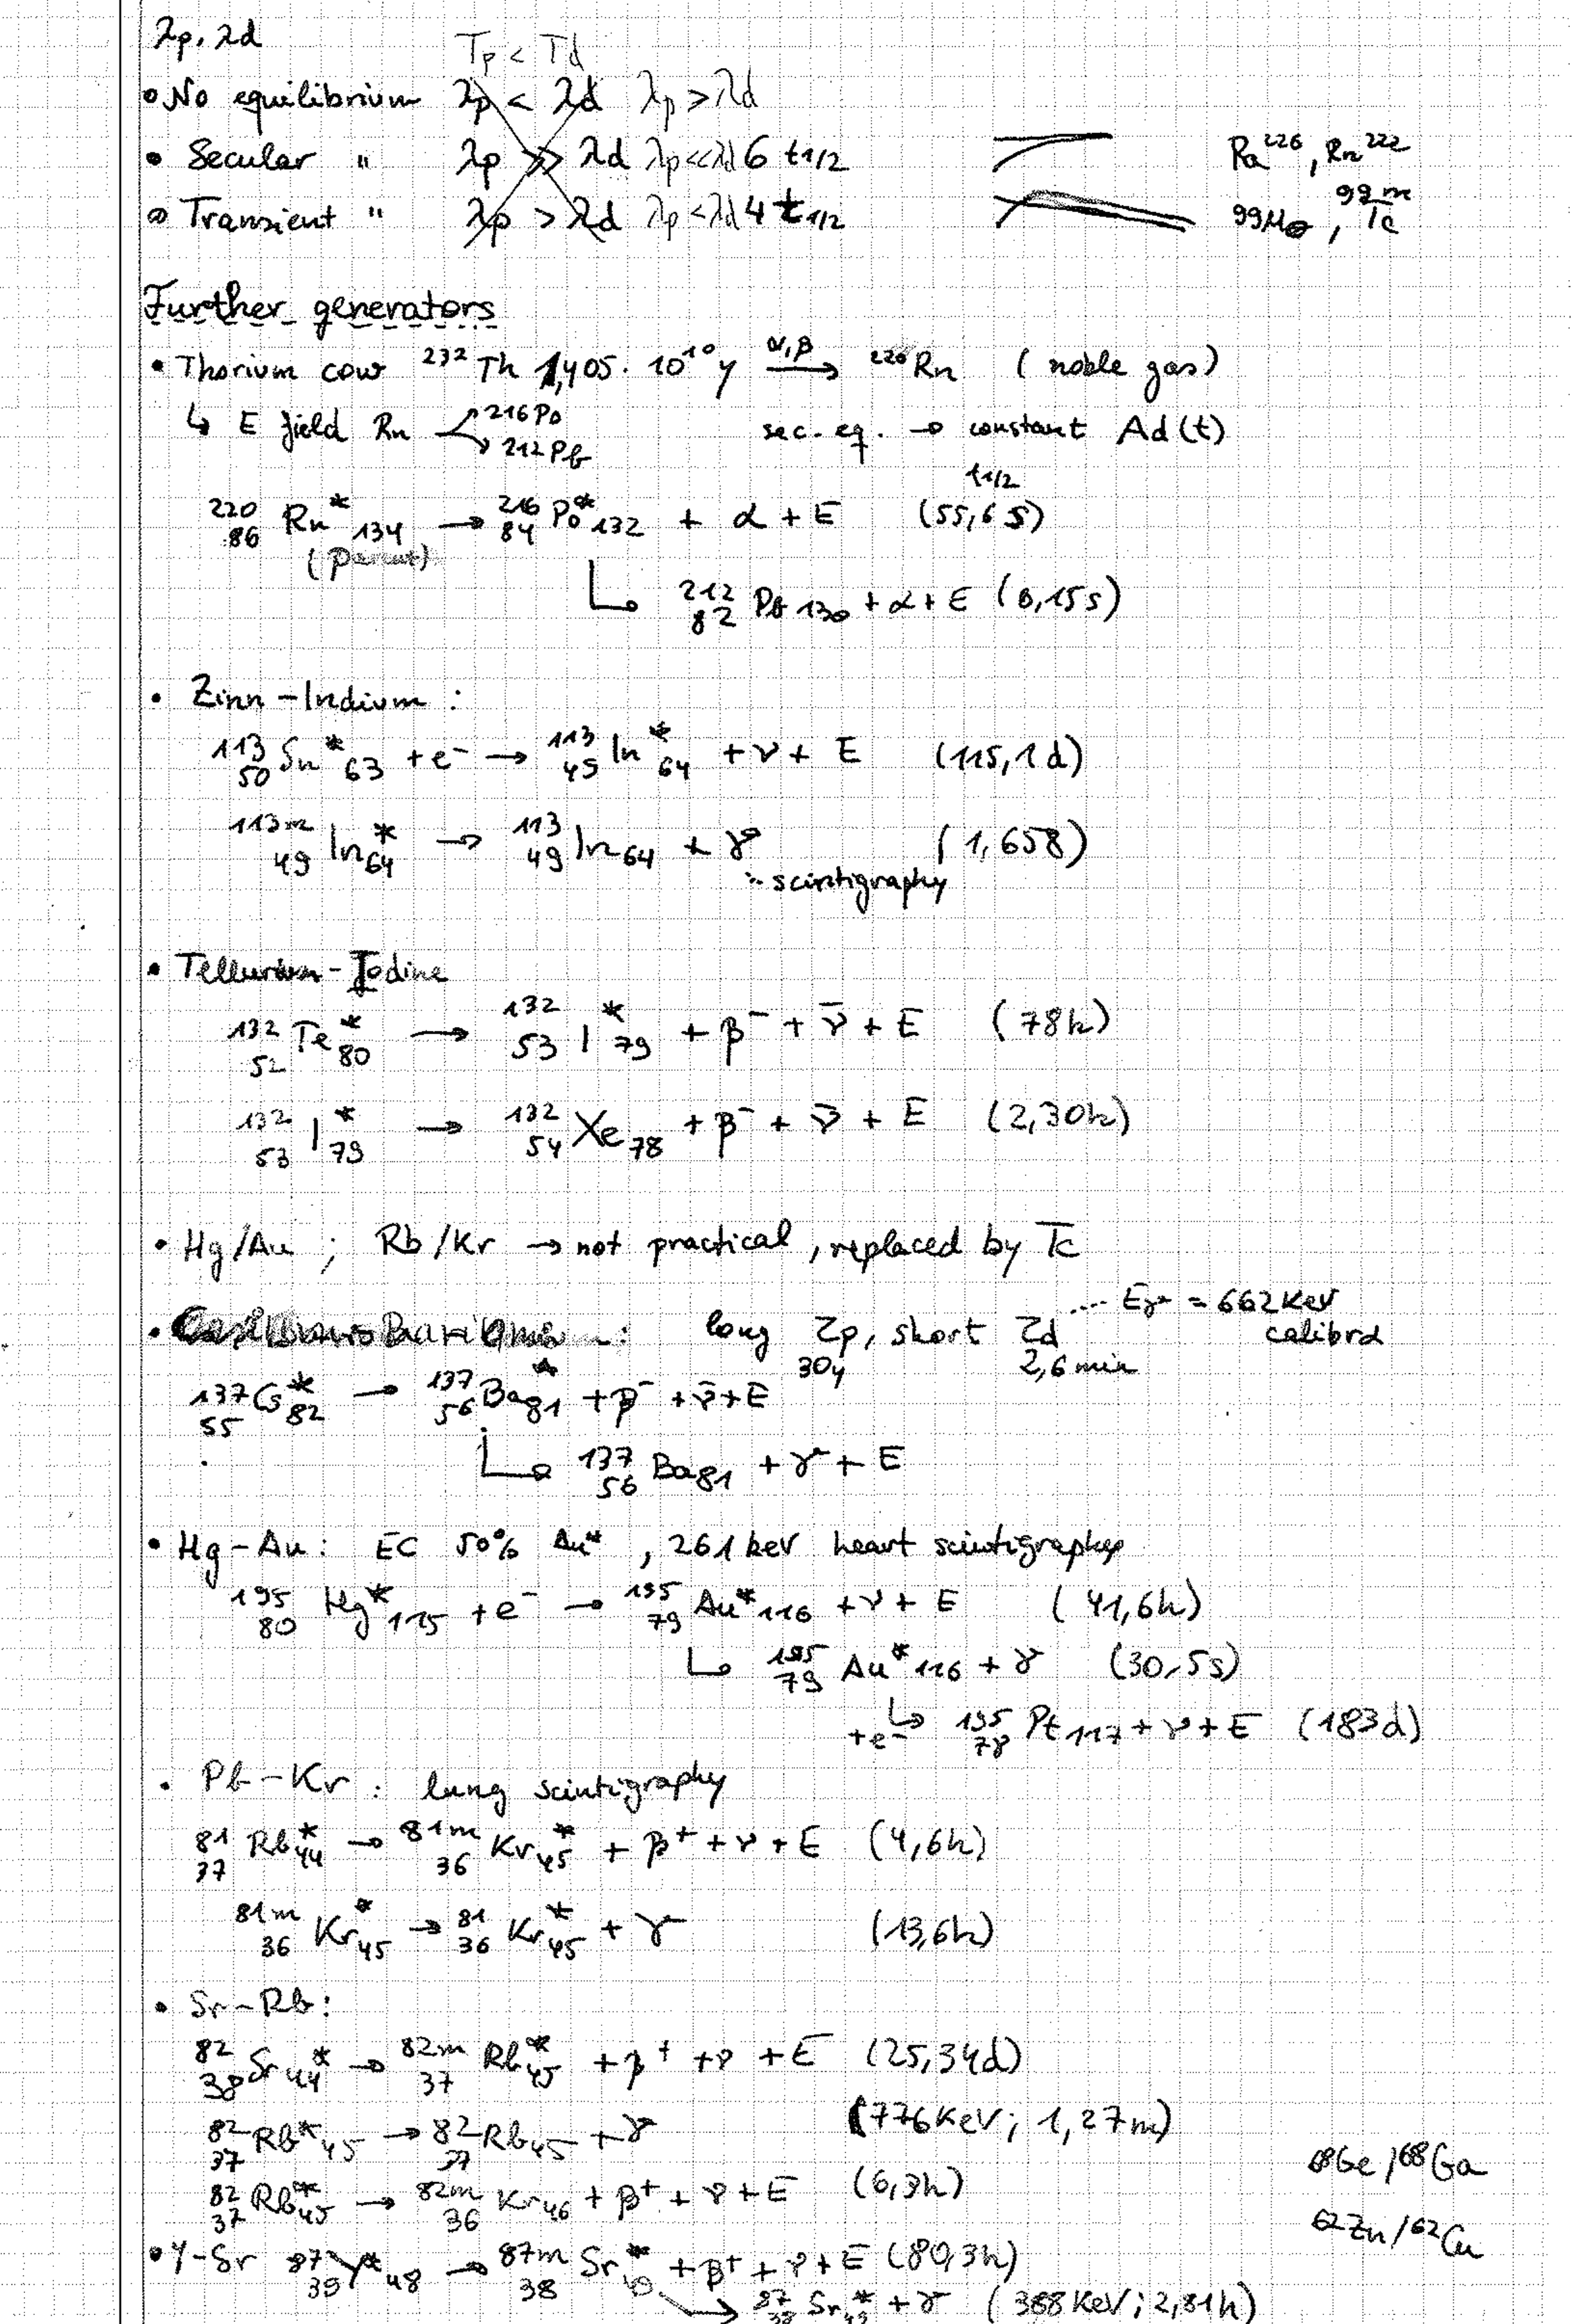 λp, λd
Tp < Td
• No equilibrium λp < λd λp > λd
• Secular " λp >> λd λp << λd 6 t1/2 Ra²²⁶, Rn²²²
• Transient " λp > λd λp < λd 4 t1/2 ⁹⁹Mo, ⁹⁹ᵐTc
Further generators
• Thorium cow ²³²Th 1,405 · 10¹⁰ y α,β → ²²⁰Rn (noble gas)
↳ E field Rn ²¹⁶Po ²¹²Pb sec. eq. → constant Ad(t)
t1/2
²²⁰₈₆Rn*₁₃₄ → ²¹⁶₈₄Po*₁₃₂ + α + E (55,6 s)
(parent)
↳ ²¹²₈₂Pb₁₃₀ + α + E (0,15s)
• Zinn-Indium :
¹¹³₅₀Sn*₆₃ + e⁻ → ¹¹³₄₉In*₆₄ + ν + E (115,1 d)
¹¹³ᵐ₄₉In*₆₄ → ¹¹³₄₉In₆₄ + γ (1,658)
scintigraphy
• Tellurium-Iodine
¹³²₅₂Te*₈₀ → ¹³²₅₃I*₇₉ + β⁻ + ν̄ + E (78h)
¹³²₅₃I*₇₉ → ¹³²₅₄Xe₇₈ + β⁻ + ν̄ + E (2,30h)
• Hg/Au ; Rb/Kr → not practical, replaced by Tc
• long τp, short τd ... Eγ = 662 KeV
30y 2,6 min
¹³⁷₅₅Cs*₈₂ → ¹³⁷₅₆Ba*₈₁ + β⁻ + ν̄ + E
↳ ¹³⁷₅₆Ba₈₁ + γ + E
• Hg-Au : EC 50% Au* , 261 keV heart scintigraphy
¹⁹⁵₈₀Hg*₁₁₅ + e⁻ → ¹⁹⁵₇₉Au*₁₁₆ + ν + E (41,6h)
↳ ¹⁹⁵₇₉Au*₁₁₆ + γ (30,5s)
+e⁻ ↳ ¹⁹⁵₇₈Pt₁₁₇ + ν + E (183d)
• Pb-Kr : lung scintigraphy
⁸¹₃₇Rb*₄₄ → ⁸¹ᵐ₃₆Kr*₄₅ + β⁺ + ν + E (4,6h)
⁸¹ᵐ₃₆Kr*₄₅ → ⁸¹₃₆Kr*₄₅ + γ (13,6h)
• Sr-Rb :
⁸²₃₈Sr*₄₄ → ⁸²ᵐ₃₇Rb*₄₅ + β⁺ + ν + E (25,34d)
⁸²₃₇Rb*₄₅ → ⁸²₃₇Rb₄₅ + γ (776 KeV; 1,27m)
⁸²₃₇Rb*₄₅ → ⁸²ᵐ₃₆Kr₄₆ + β⁺ + ν + E (6,3h)
⁶⁸Ge/⁶⁸Ga
⁶²Zn/⁶²Cu
• Y-Sr ⁸⁷₃₉Y*₄₈ → ⁸⁷ᵐ₃₈Sr* + β⁺ + ν + E (80,3h)
⁸⁷₃₈Sr*₄₉ + γ (388 KeV; 2,81h)